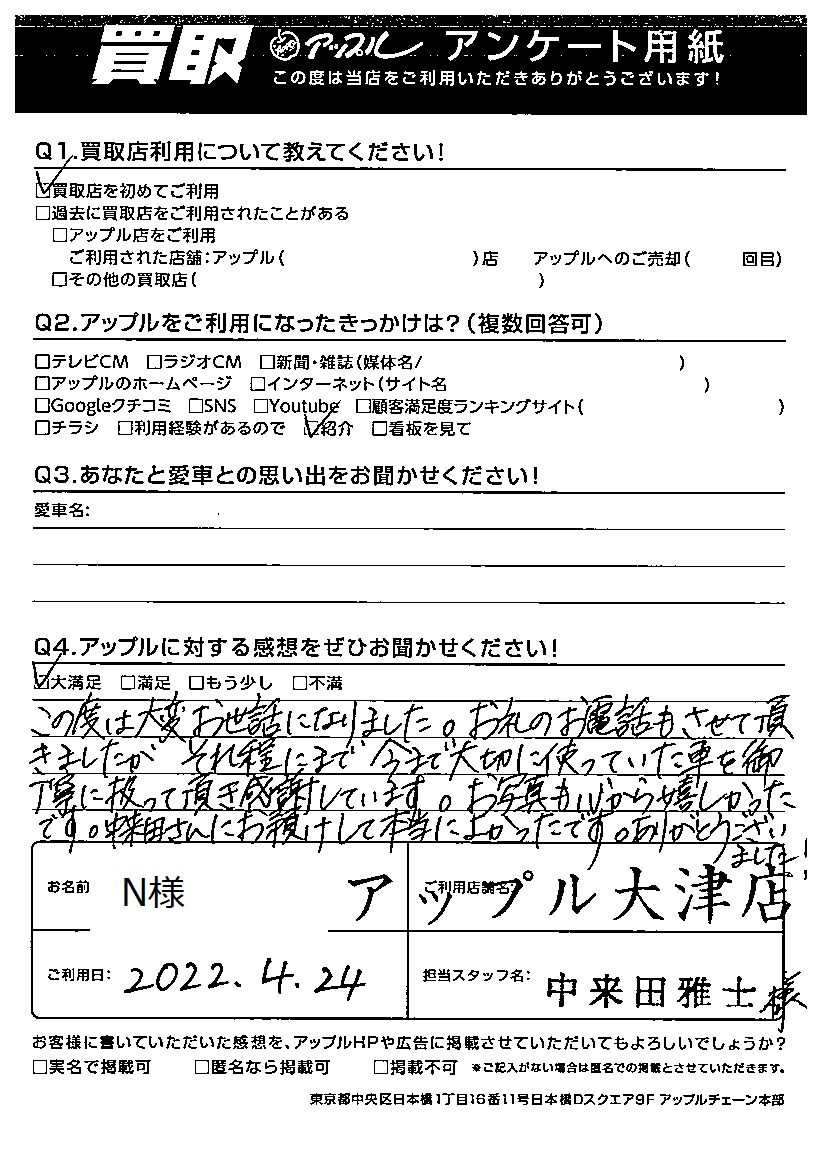 買取 アップル アンケート用紙
この度は当店をご利用いただきありがとうございます!
Q1.買取店利用について教えてください!
☑買取店を初めてご利用
□過去に買取店をご利用されたことがある
□アップル店をご利用
ご利用された店舗:アップル( )店 アップルへのご売却( 回目)
□その他の買取店( )
Q2.アップルをご利用になったきっかけは?(複数回答可)
□テレビCM □ラジオCM □新聞・雑誌(媒体名/ )
□アップルのホームページ □インターネット(サイト名 )
□Googleクチコミ □SNS □Youtube □顧客満足度ランキングサイト( )
□チラシ □利用経験があるので ☑紹介 □看板を見て
Q3.あなたと愛車との思い出をお聞かせください!
愛車名:
Q4.アップルに対する感想をぜひお聞かせください!
☑大満足 □満足 □もう少し □不満
この度は大変お世話になりました。お礼のお電話もさせて頂
きましたが それ程にまで 今まで大切に使っていた車を御
丁寧に扱って頂き感謝しています。お写真も心から嬉しかった
です。中来田さんにお預けして本当によかったです。ありがとうござい
ました!
お名前 N様 ご利用店舗名: アップル大津店
ご利用日: 2022.4.24 担当スタッフ名: 中来田雅士様
お客様に書いていただいた感想を、アップルHPや広告に掲載させていただいてもよろしいでしょうか?
□実名で掲載可 □匿名なら掲載可 □掲載不可 ※ご記入がない場合は匿名での掲載とさせていただきます。
東京都中央区日本橋1丁目16番11号日本橋Dスクエア9F アップルチェーン本部